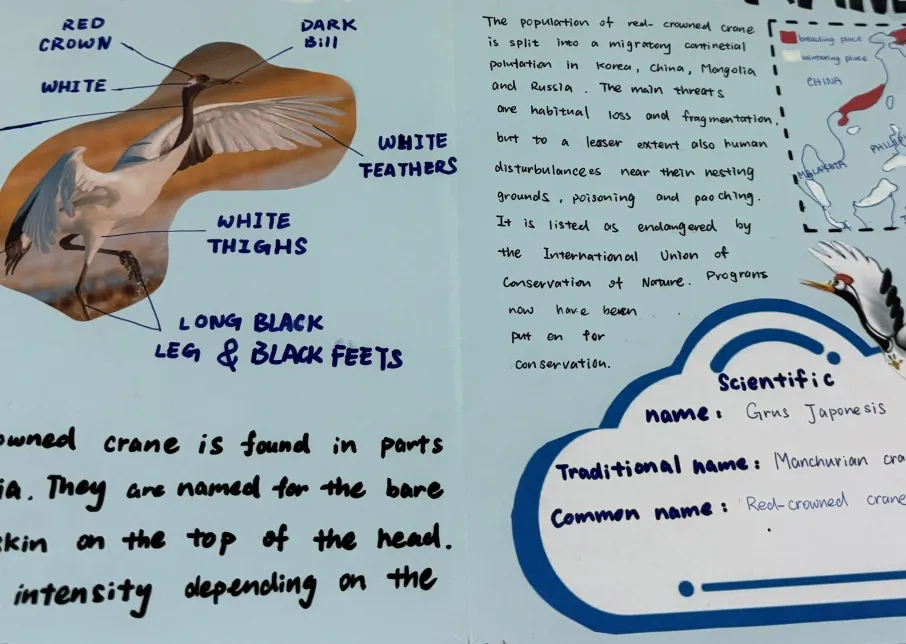 RED
CROWN
DARK
Bill
WHITE
WHITE
FEATHERS
WHITE
THIGHS
LONG BLACK
LEG & BLACK FEETS
owned crane is found in parts
ia. They are named for the bare
skin on the top of the head.
intensity depending on the
The population of red-crowned crane
is split into a migratory continetial
polulation in Korea, China, Mongolia
and Russia. The main threats
are habitual loss and fragmentation,
but to a lesser extent also human
disturbulancees near thein nesting
grounds, poisoning and paoching.
It is listed as endangered by
the International Union of
Conservation of Nature. Programs
now have beren
put on for
conservation.
breeding place
wintering place
CHINA
MALAYSIA
Scientific
name: Grus Japonesis
Traditional name: Manchurian cra
Common name: Red-crowned crane